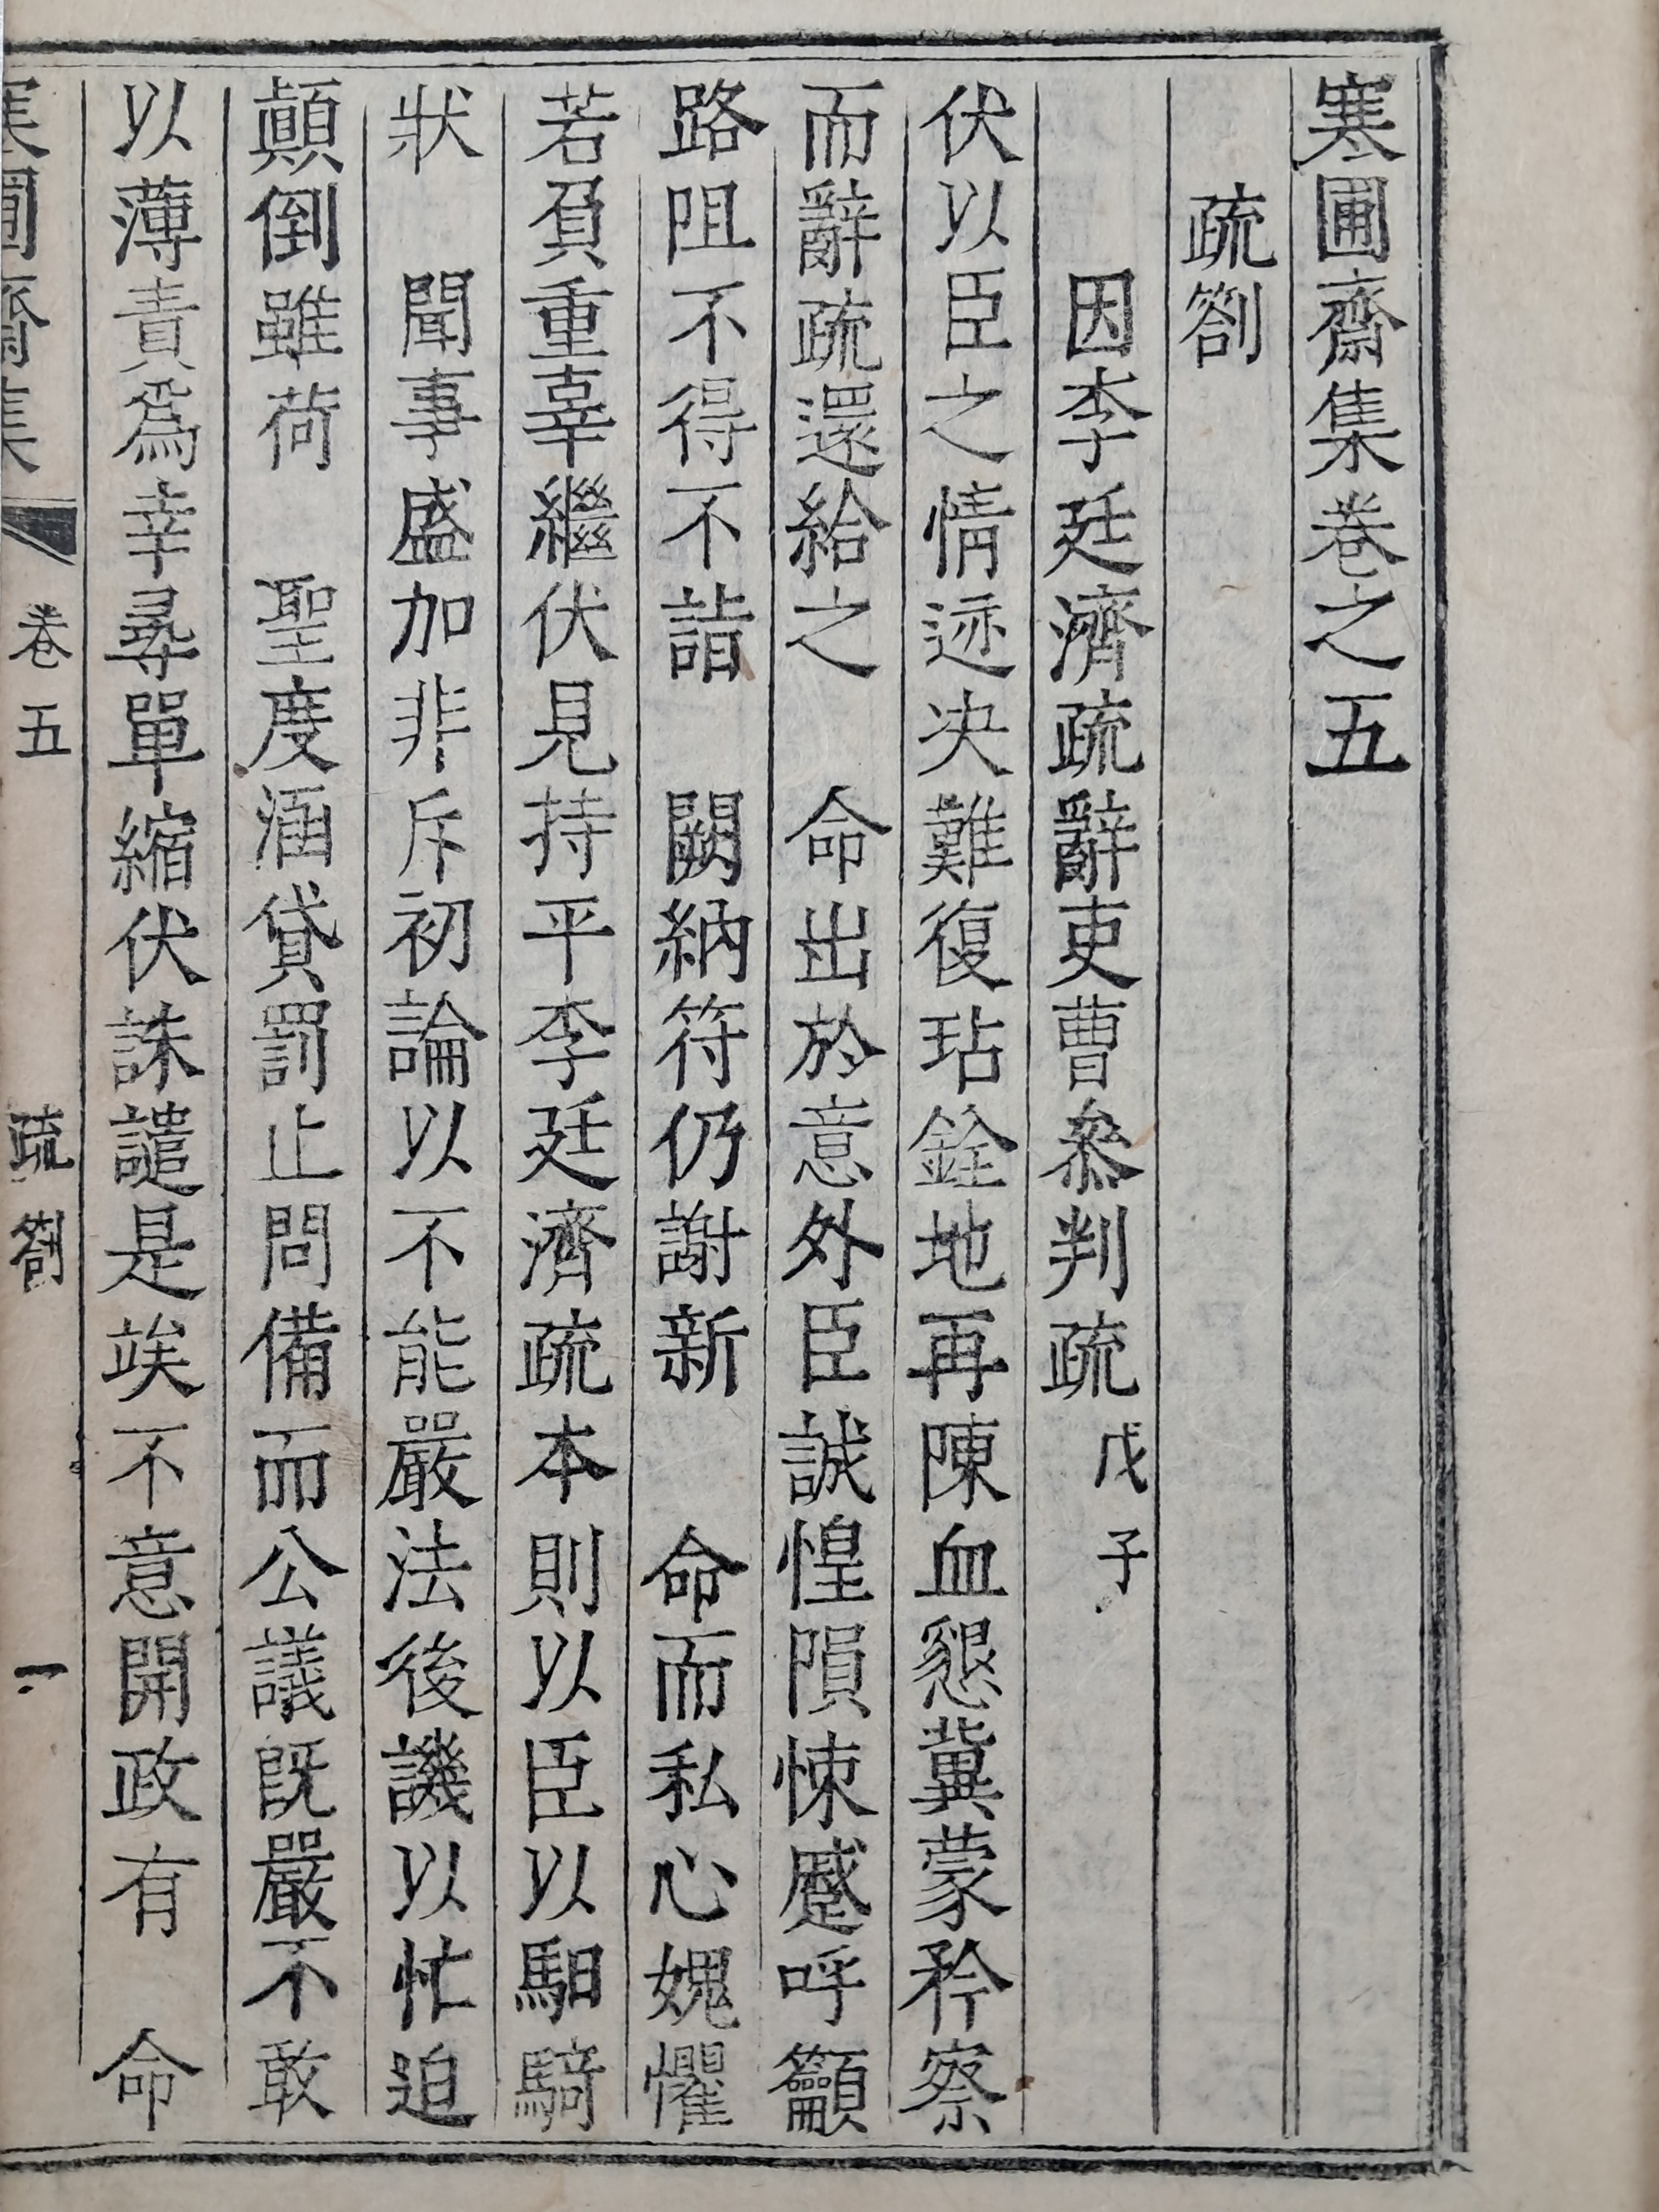 寒圃齋集卷之五
疏劄
因李廷濟疏辭吏曹叅判疏 戊子
伏以臣之情迹决難復玷銓地再陳血懇冀蒙矜察
而辭疏還給之 命出於意外臣誠惶隕悚蹙呼籲
路阻不得不詣 闕納符仍謝新 命而私心媿懼
若負重辜繼伏見持平李廷濟疏本則以臣以馹騎
狀 聞事盛加非斥初論以不能嚴法後譏以忙迫
顚倒雖荷 聖度涵貸罰止問備而公議旣嚴不敢
以薄責爲幸尋單縮伏誅譴是竢不意開政有 命
寒圃齋集 卷五 疏劄 一